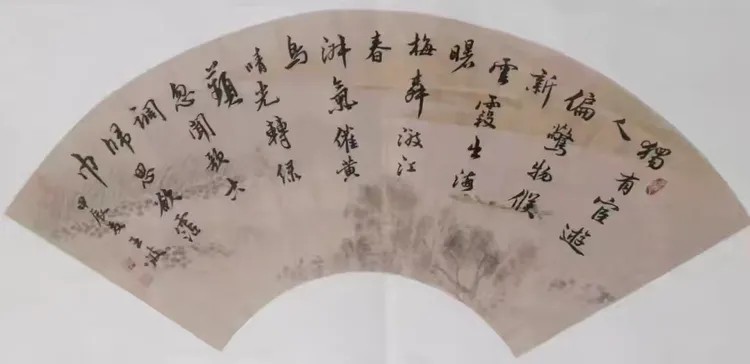 獨有宦遊
人
偏驚物候
新
雲霞出海
曙
梅柳渡江
春
淑氣催黃
鳥
晴光轉綠
蘋
忽聞歌古
調
歸思欲霑
巾
甲辰夏